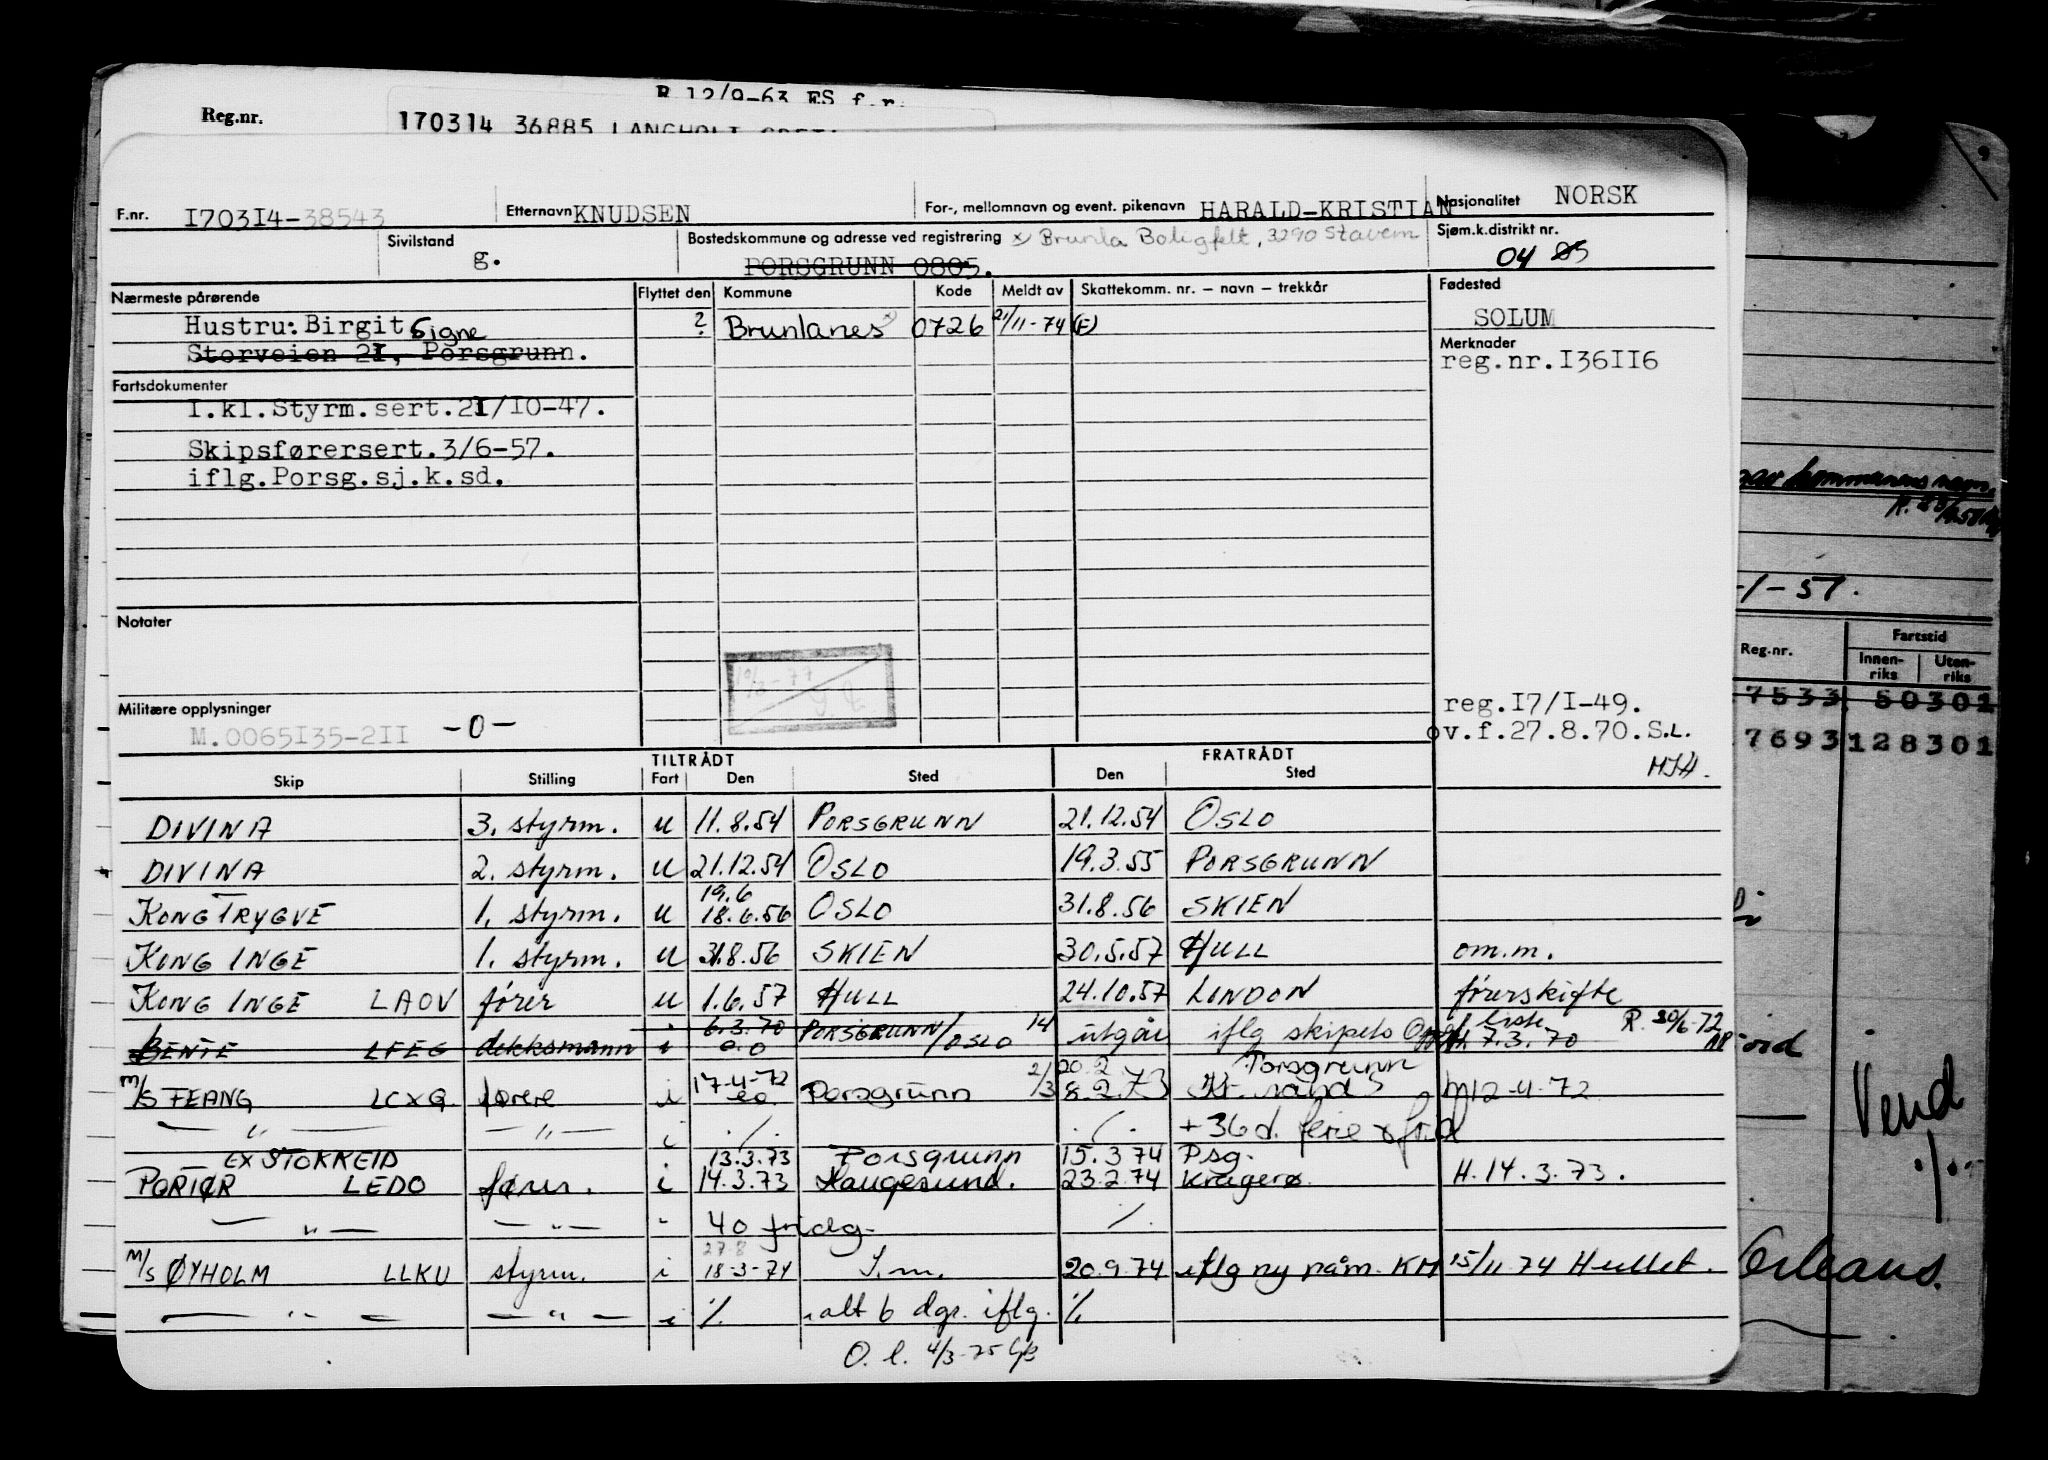 R 12/9-63 ES f.r.
Reg.nr. 170314 36885 LANGHOLT
F.nr. I703I4-38543 Etternavn KNUDSEN For-, mellomnavn og event. pikenavn HARALD-KRISTIAN Nasjonalitet NORSK
Sivilstand g. Bostedskommune og adresse ved registrering x/ Brunla Boligfelt, 3290 Stavern Sjøm.k.distrikt nr. 04 05
PORSGRUNN 0805.
Nærmeste pårørende Flyttet den Kommune Kode Meldt av Skattekomm. nr. – navn – trekkår Fødested
Hustru: Birgit Signe ? Brunlanes x 0726 21/11-74 (F) SOLUM
Storveien 2I, Porsgrunn. Merknader
reg.nr.I36II6
Fartsdokumenter
I.kl.Styrm.sert.2I/IO-47.
Skipsførersert.3/6-57.
iflg.Porsg.sj.k.sd.
Notater
Militære opplysninger
M.0065I35-2II -0-
reg.I7/I-49.
ov.f.27.8.70.S.L.
MJH.
TILTRÅDT FRATRÅDT
Skip Stilling Fart Den Sted Den Sted
DIVINA 3. styrm. u 11.8.54 PORSGRUNN 21.12.54 OSLO
DIVINA 2. styrm. u 21.12.54 OSLO 19.3.55 PORSGRUNN
19.6
KONG TRYGVE 1. styrm. u 18.6.56 OSLO 31.8.56 SKIEN
KONG INGE 1. styrm. u 31.8.56 SKIEN 30.5.57 HULL om.m.
KONG INGE LAOV fører u 1.6.57 HULL 24.10.57 LONDON førerskifte
BENTE LFEG dekksmann i 6.3.70 PORSGRUNN/OSLO 14 utgår iflg skipets liste 7.3.70 R. 30/6-72
20.2 Porsgrunn
M/S FEANG LCXG førere i 17-4-72 Porsgrunn 2/3 8.2.73 Kr.sand S M12-4-72
— " — — " — i ./. ./. + 36 d. ferie & frid
EX STOKKEID 13.3.73 Porsgrunn 15.3 74 Psg.
PORTØR LEDO fører. i 14.3.73 Haugesund. 23.2.74 Kragerø H.14.3.73.
— " — — " — - 40 fridg. ./.
27.8
M/S ØYHOLM LLKU styrm. i 18-3-74 S.m. 20.9.74 iflg ny påm. KM 15/11 74 Hullet.
— " — — " — i ./. i alt 6 dgr. iflg. ./.
O.l. 4/3-75
kommunens navn.
-1-57.
Reg.nr. Fartstid
Innen-riks Uten-riks
7533 50301
7693 128301
Vend
./.
Orleans.